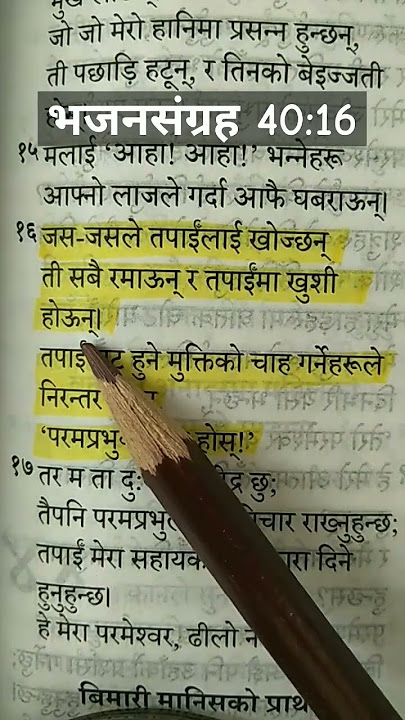 जो जो मेरो हानिमा प्रसन्न हुन्छन्,
ती पछाड़ि हटून्, र तिनको बेइज्जती
भजनसंग्रह 40:16
१५ मलाई ‘आहा! आहा!’ भन्नेहरू
आफ्नो लाजले गर्दा आफै घबराऊन्।
१६ जस-जसले तपाईंलाई खोज्छन्
ती सबै रमाऊन् र तपाईंमा खुशी
होऊन्।
हुने मुक्तिको चाह गर्नेहरूले
निरन्तर
होस्!’
१७ तर म ता छु;
तैपनि राख्नुहुन्छ;
तपाईं मेरा दिने
हुनुहुन्छ।
हे मेरा परमेश्वर, ढीलो
बिमारी मानिसको